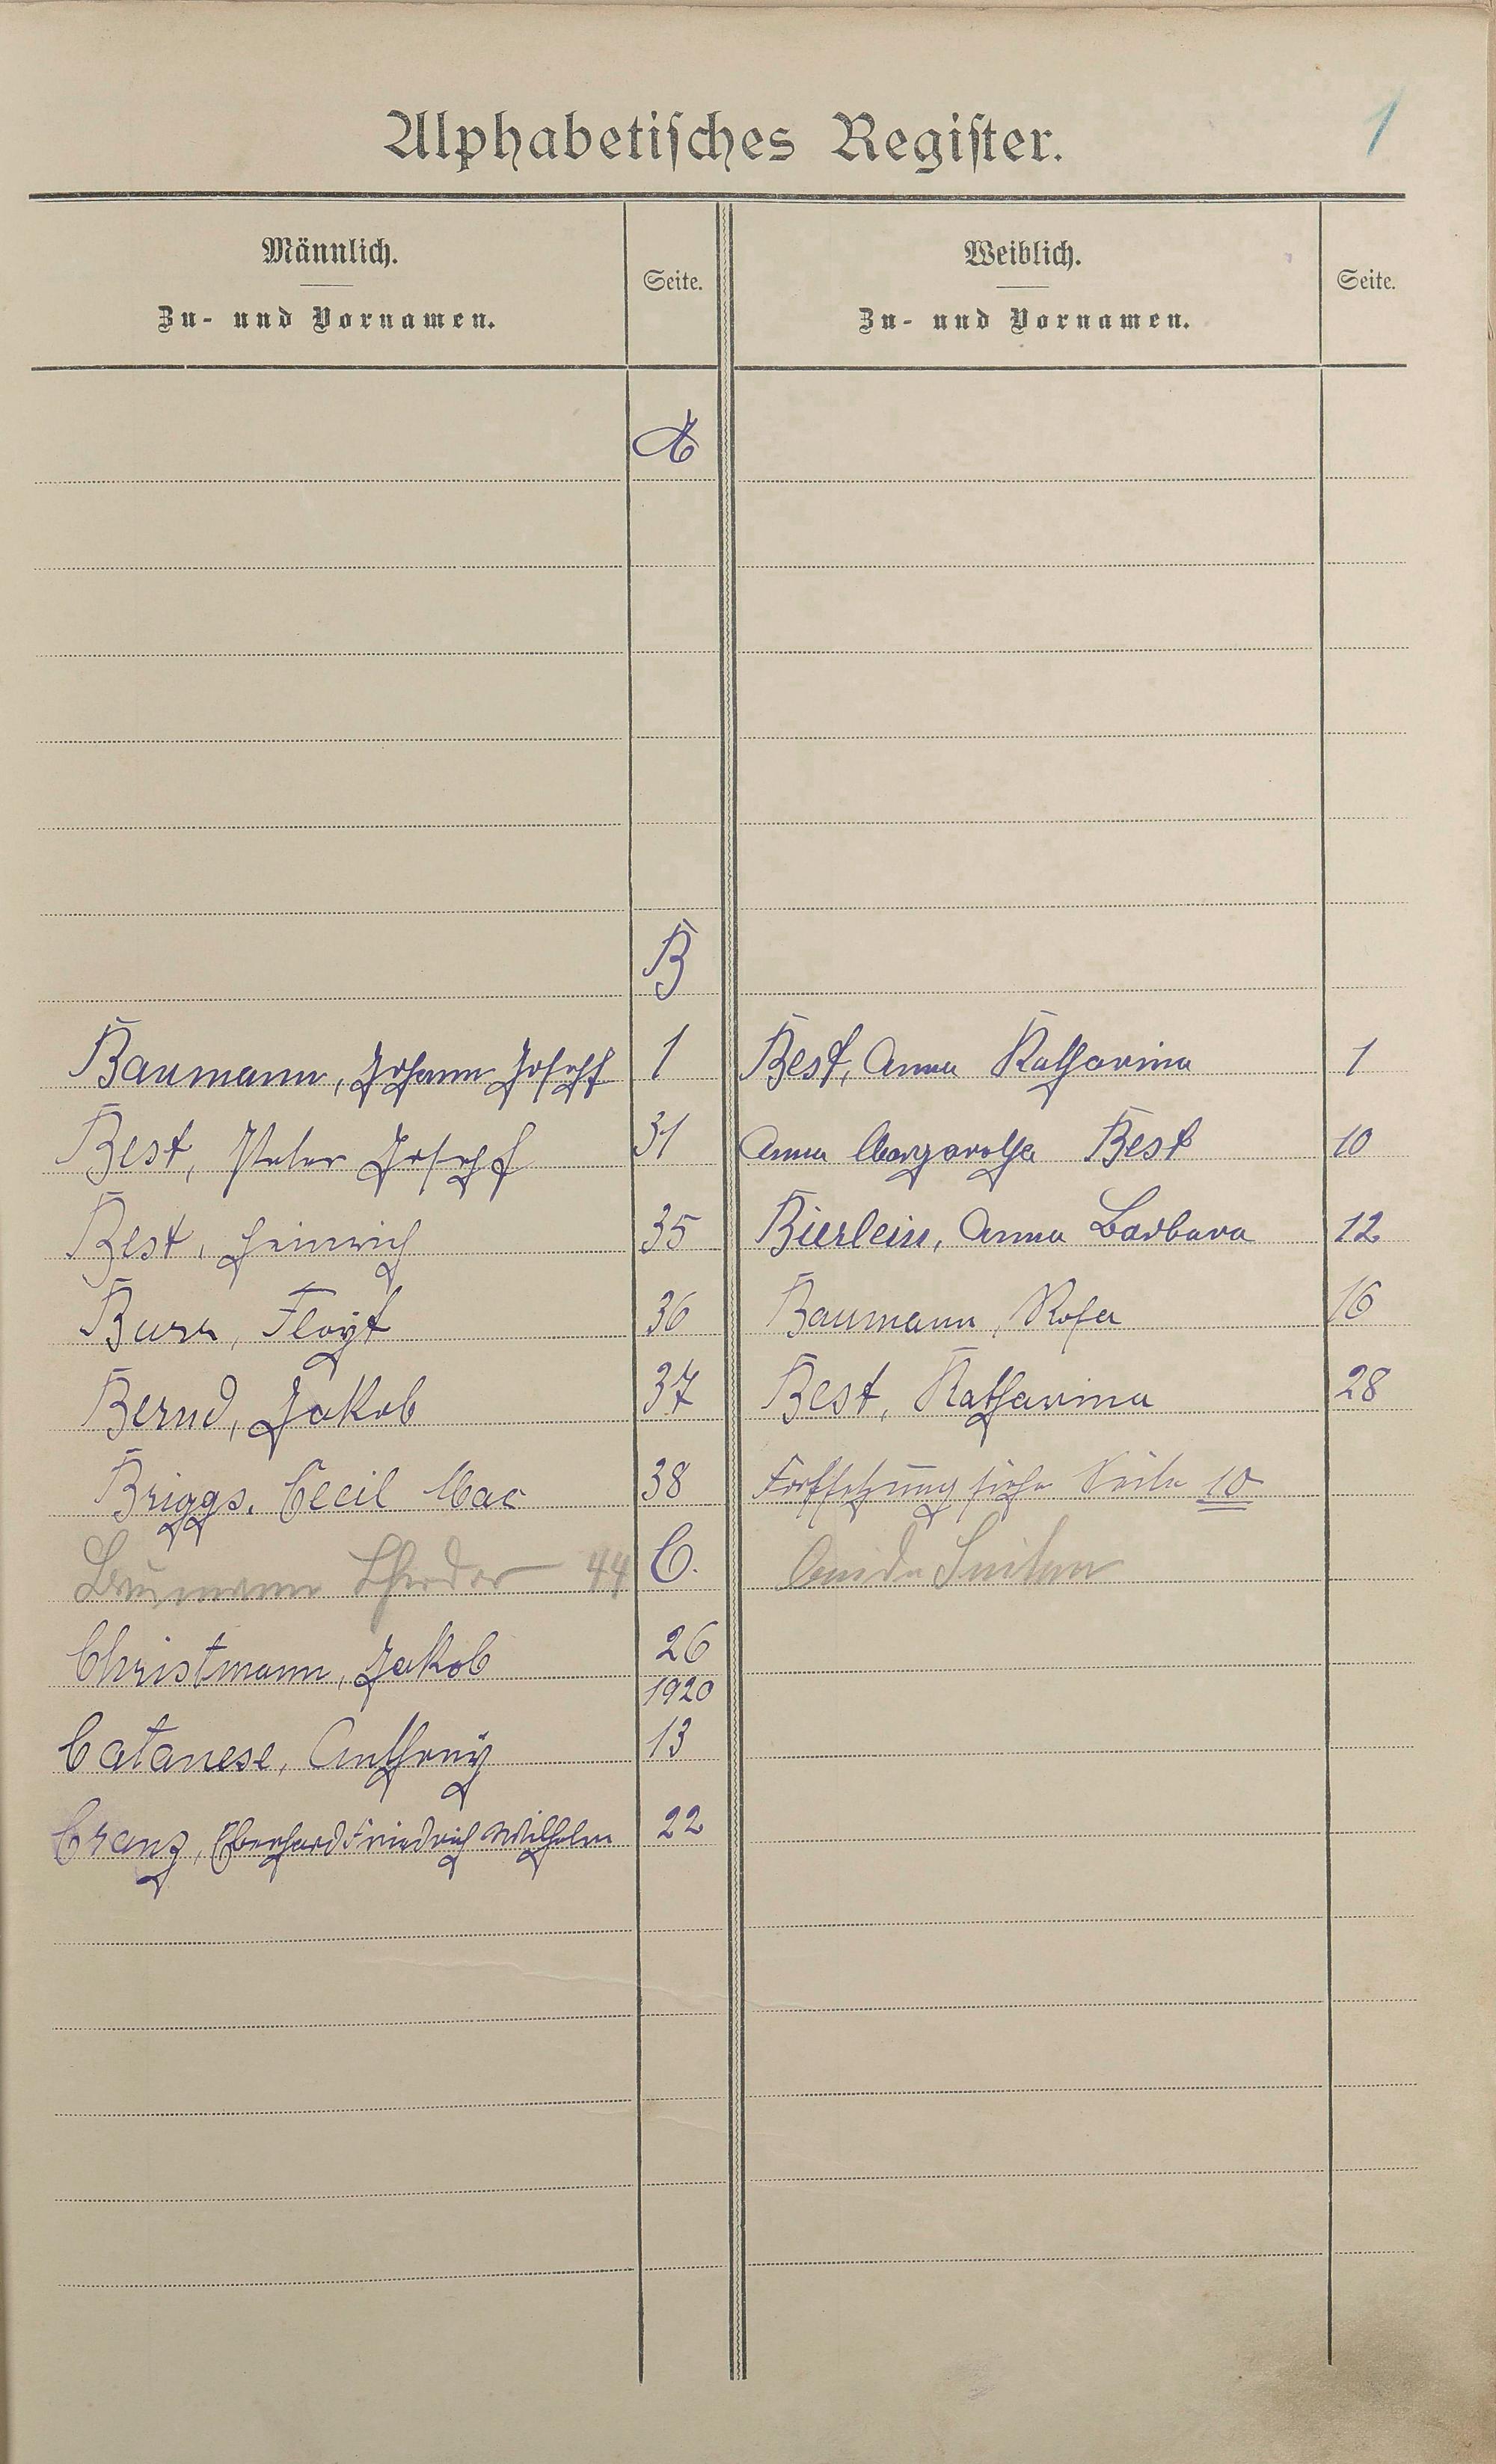 Alphabetisches Register.
1
Männlich.
Zu- und Vornamen.
Seite.
Weiblich.
Zu- und Vornamen.
Seite.
A
B
Baumann, Johann Joseph 1 Best, Anna Katharina 1
Best, Peter Joseph 31 Anna Margaretha Best 10
Best, Heinrich 35 Bierlein, Anna Barbara 12
Burr, Floyt 36 Baumann, Rosa 16
Bernd, Jakob 37 Best, Katharina 28
Briggs, Cecil Mac 38 Fortsetzung siehe Seite 10
Baumann 44 C.
Christmann, Jakob 26
1920
Catanese, Anthony 13
Cranz, Eberhard Friedrich Wilhelm 22